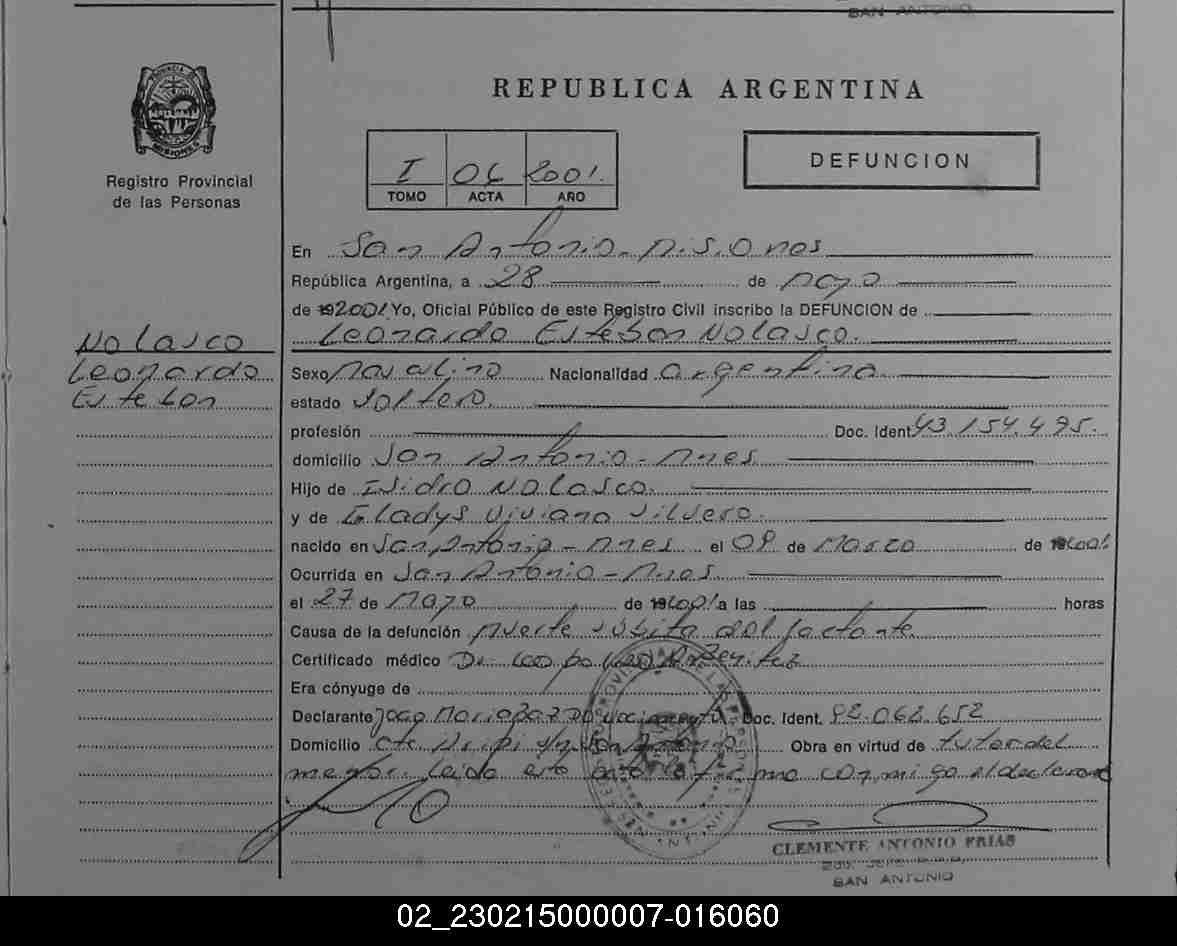 SAN ANTONIO
REPUBLICA ARGENTINA
PROVINCIA DE
MISIONES
Registro Provincial
de las Personas
I 04 2001.
TOMO ACTA AÑO
DEFUNCION
En San Antonio - Misiones
República Argentina, a 28 de Mayo
de 192001 Yo, Oficial Público de este Registro Civil inscribo la DEFUNCION de
Leonardo Esteban Nolasco.
Nolasco
Leonardo
Esteban
Sexo Masculino Nacionalidad argentina.
estado Soltero.
profesión Doc. Ident. 43.154.495.
domicilio San Antonio - Mnes
Hijo de Isidro Nolasco.
y de Gladys Viviana Silvero.
nacido en San Antonio - Mnes el 09 de Marzo de 2001
Ocurrida en San Antonio - Mnes
el 27 de Mayo de 192001 a las horas
Causa de la defunción Muerte súbita del lactante
Certificado médico Dr. Leopoldo Benitez
Era cónyuge de
Declarante Doc. Ident. 92.062.652
Domicilio San Antonio Obra en virtud de tutor del
menor. Leida esta acta la firma conmigo el declarante
CLEMENTE ANTONIO FRIAS
SAN ANTONIO
02_230215000007-016060